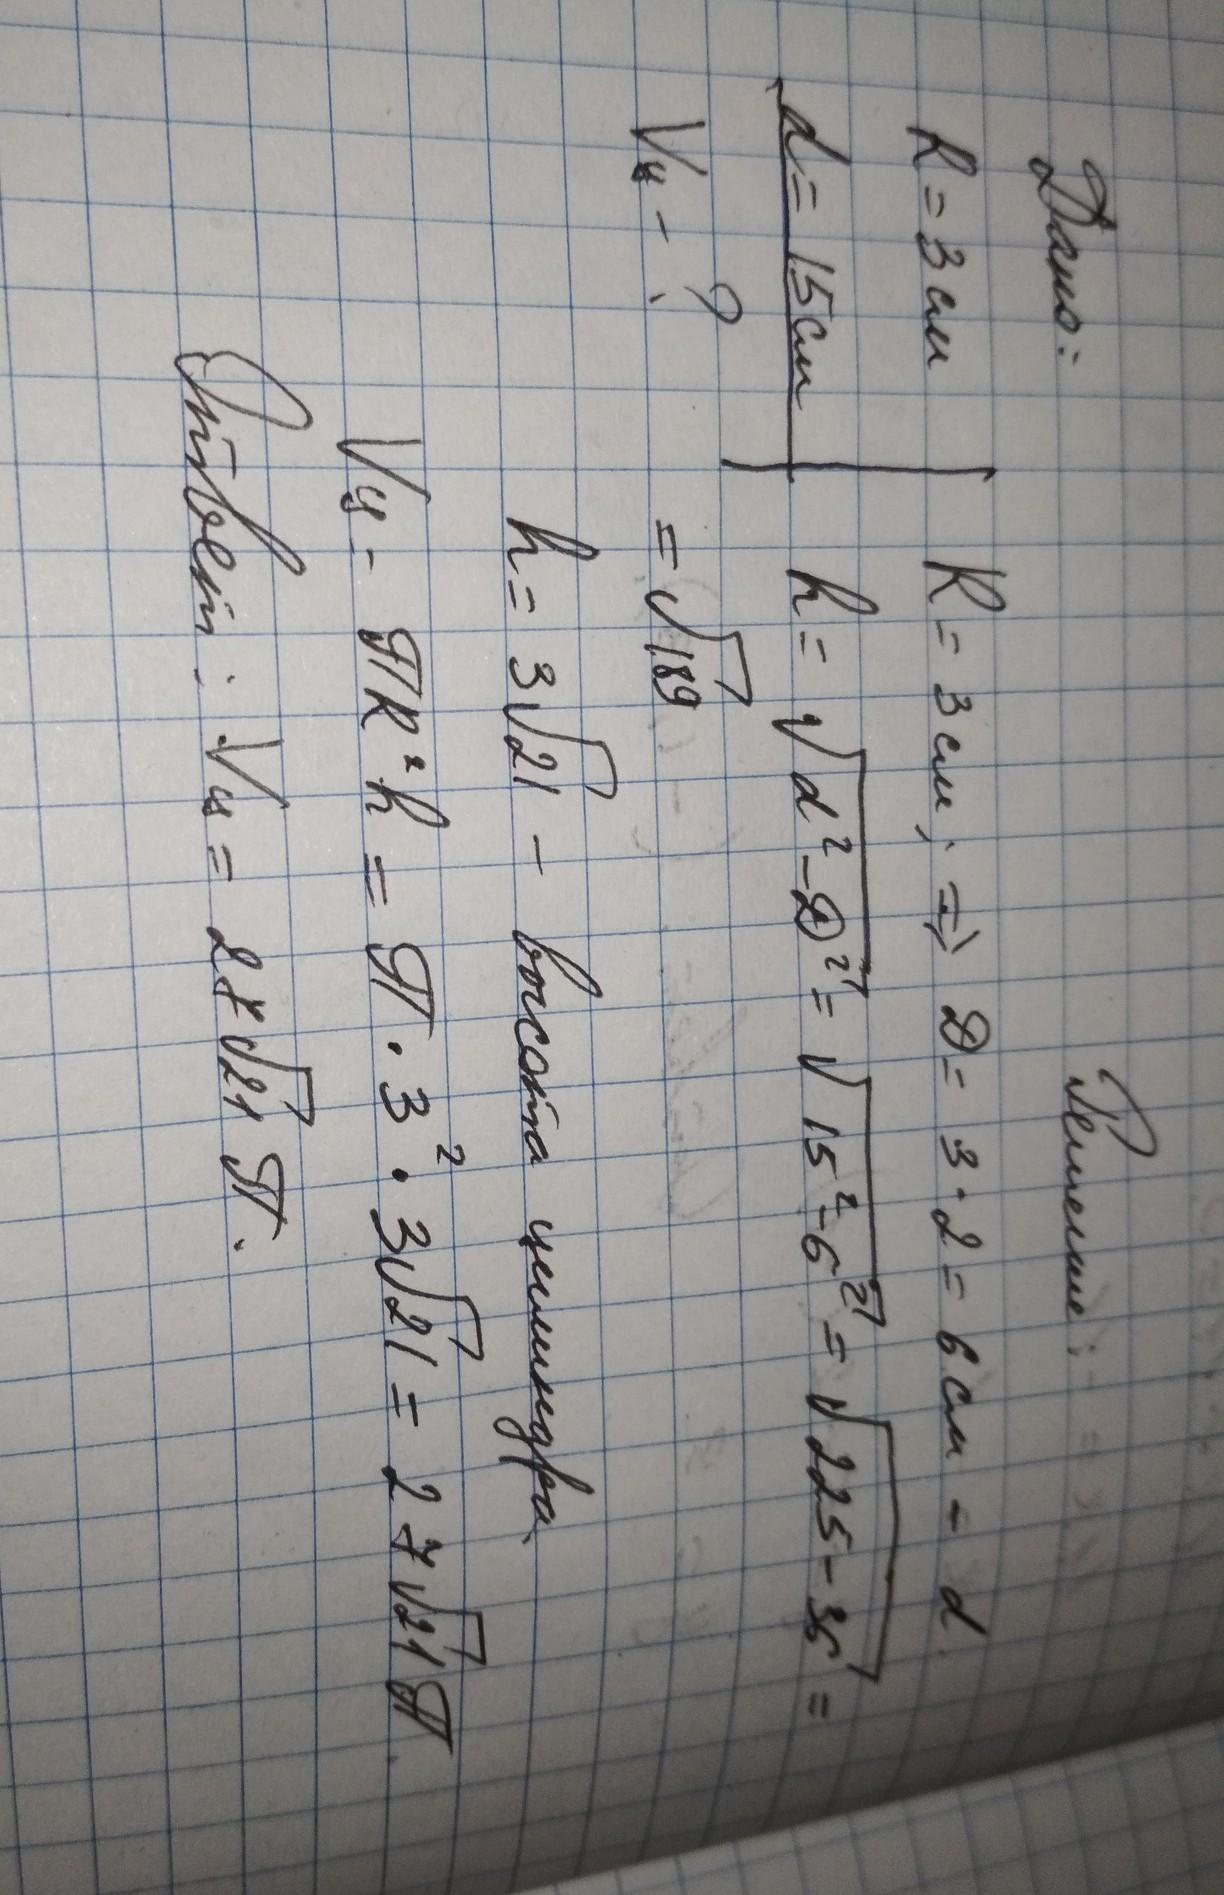 Дано:
R = 3 см
d = 15 см
Vц - ?
Решение:
R = 3 см, => D = 3 · 2 = 6 см - d.
h = √d² - D² = √15² - 6² = √225 - 36 =
= √189
h = 3√21 - высота цилиндра
Vц - πR²h = π · 3² · 3√21 = 27√21 π
Ответ: Vц = 27√21 π.